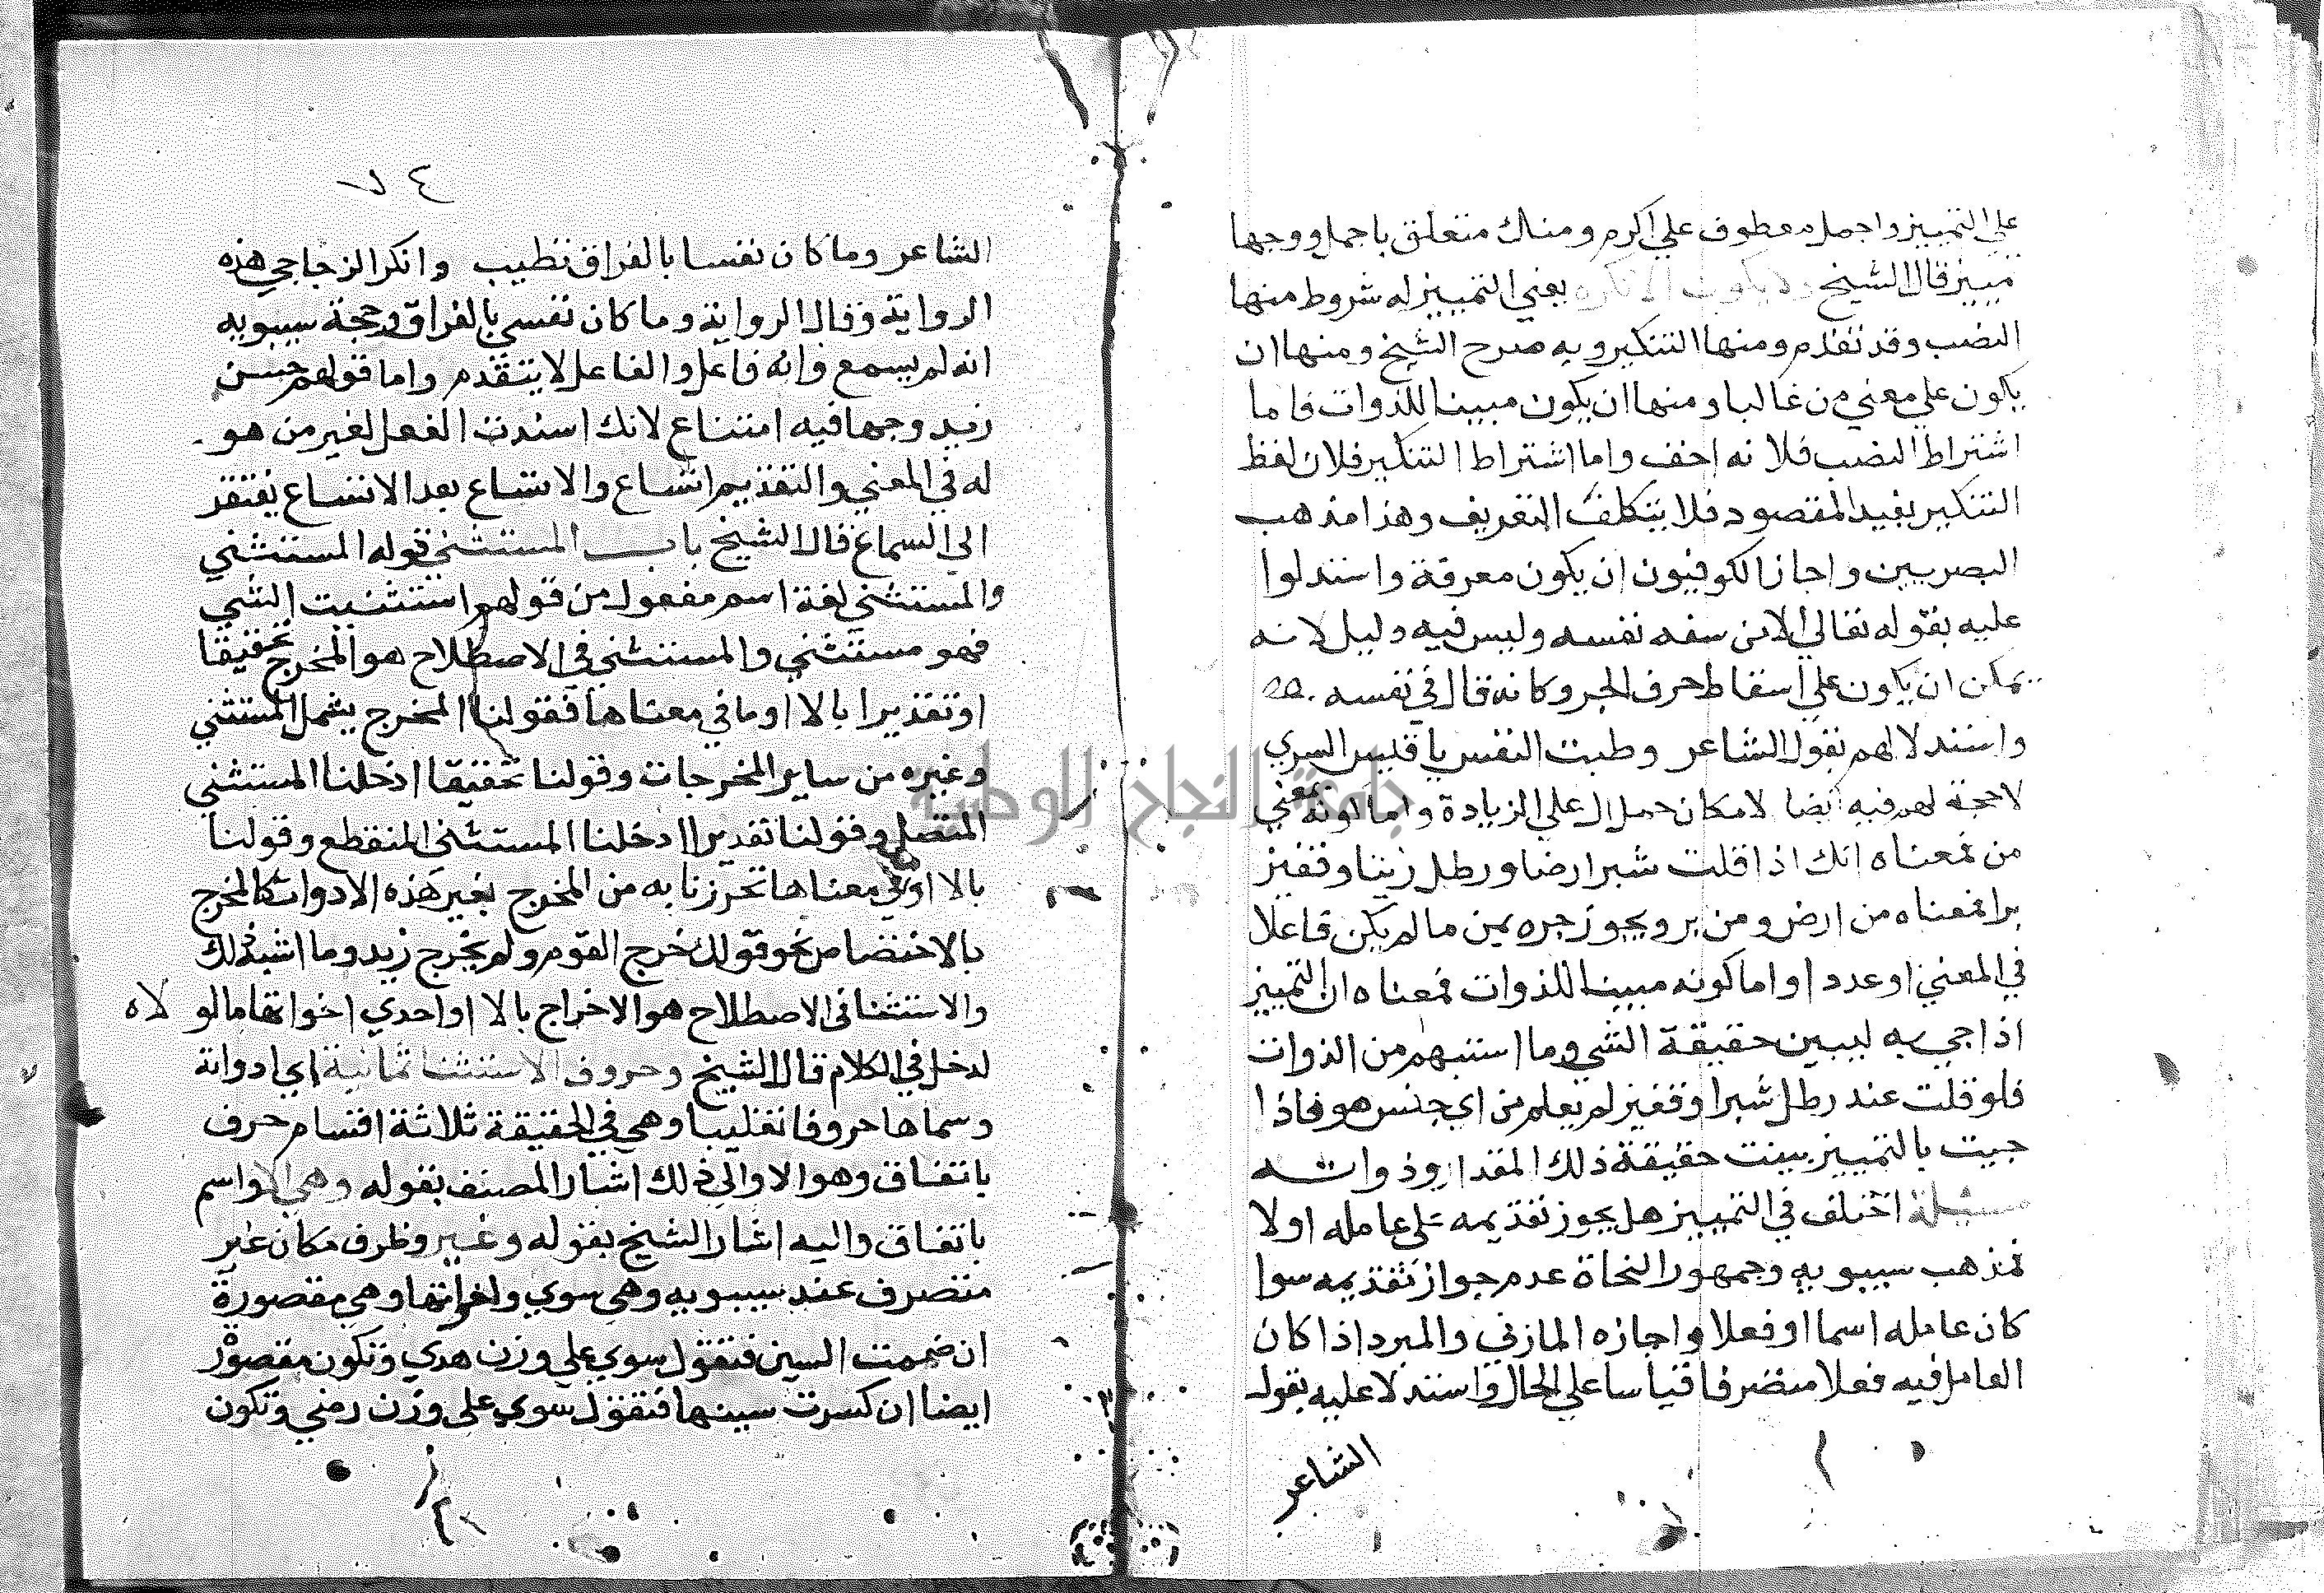 علي التمييز واجمل معطوف علي اكرم ومنك متعلق باجمل ووجها
مييز قال الشيخ ولا يكون الا نكره يعني التمييز له شروط منها
النصب وقد تقدم ومنها التنكير وبه صرح الشيخ ومنها ان
يكون علي معني من غالبا ومنها ان يكون مبينا للذوات فاما
اشتراط النصب فلانه اخف واما اشتراط التنكير فلان لفظ
التنكير يفيد المقصود فلا يتكلف التعريف وهذا مذهب
البصريين واجاز الكوفيون ان يكون معرفة واستدلوا
عليه بقوله تعالي الا من سفه نفسه وليس فيه دليل لانه
يمكن ان يكون علي اسقاط حرف الجر وكانه قال في نفسه
واستدلالهم بقول الشاعر وطبت النفس يا قيس السري
لا حجة لهم فيه ايضا لامكان حمل ال علي الزيادة واما كونه بمعني
من فمعناه انك اذا قلت شبر ارضا ورطل زيتا وقفيز
برا فمعناه من ارض ومن بر ويجوز جره بمن ما لم يكن فاعلا
في المعني او عددا واما كونه مبينا للذوات فمعناه ان التمييز
اذا جي به ليبين حقيقة الشي وما استبهم من الذوات
فلو قلت عند رطل شبر او قفيز لم يعلم من اي جنس هو فاذا
جيت بالتمييز بينت حقيقة ذلك المقدار وذواته
مسيلة اختلف في التمييز هل يجوز تقديمه علي عامله اولا
فمذهب سيبويه وجمهور النحاة عدم جواز تقديمه سوا
كان عامله اسما او فعلا واجازه المازني والمبرد اذا كان
العامل فيه فعلا متصرفا قياسا علي الحال واستدلا عليه بقول
الشاعر
٧٤
الشاعر وما كان نفسا بالفراق تطيب وانكر الزجاجي هذه
الرواية وقال الرواية وما كان نفسي بالفراق وحجة سيبويه
انه لم يسمع وانه فاعل والفاعل لا يتقدم واما قولهم حسن
زيد وجها فيه امتناع لانك اسندت الفعل لغير من هو
له في المعني والتقديم اتساع والاتساع بعد الاتساع يفتقر
الي السماع قال الشيخ باب المستثني قوله المستثني
والمستثني لغة اسم مفعول من قولهم استثنيت الشي
فهو مستثني والمستثني في الاصطلاح هو المخرج تحقيقا
او تقديرا بالا او ما في معناها فقولنا المخرج يشمل المستثني
وغيره من ساير المخرجات وقولنا تحقيقا ادخلنا المستثني
المتصل وقولنا تقديرا ادخلنا المستثني المنقطع وقولنا
بالا او في معناها تحرزنا به من المخرج بغير هذه الادوات كالمخرج
بالاختصاص نحو قولك خرج القوم ولم يخرج زيد وما اشبه ذلك
والاستثنا في الاصطلاح هو الاخراج بالا او احدي اخواتها ما لو لاه
لدخل في الكلام قال الشيخ وحروف الاستثنا ثمانية اي ادواته
وسماها حروفا تغليبا وهي في الحقيقة ثلاثة اقسام حرف
باتفاق وهو الا والي ذلك اشار المصنف بقوله وهي الا واسم
باتفاق واليه اشار الشيخ بقوله وغير وظرف مكان غير
متصرف عند سيبويه وهي سوي واخواتها وهي مقصورة
ان ضممت السين فتقول سوي علي وزن هدي وتكون مقصور
ايضا ان كسرت سينها فتقول سوي علي وزن رضي وتكون
جامعة النجاح الوطنية